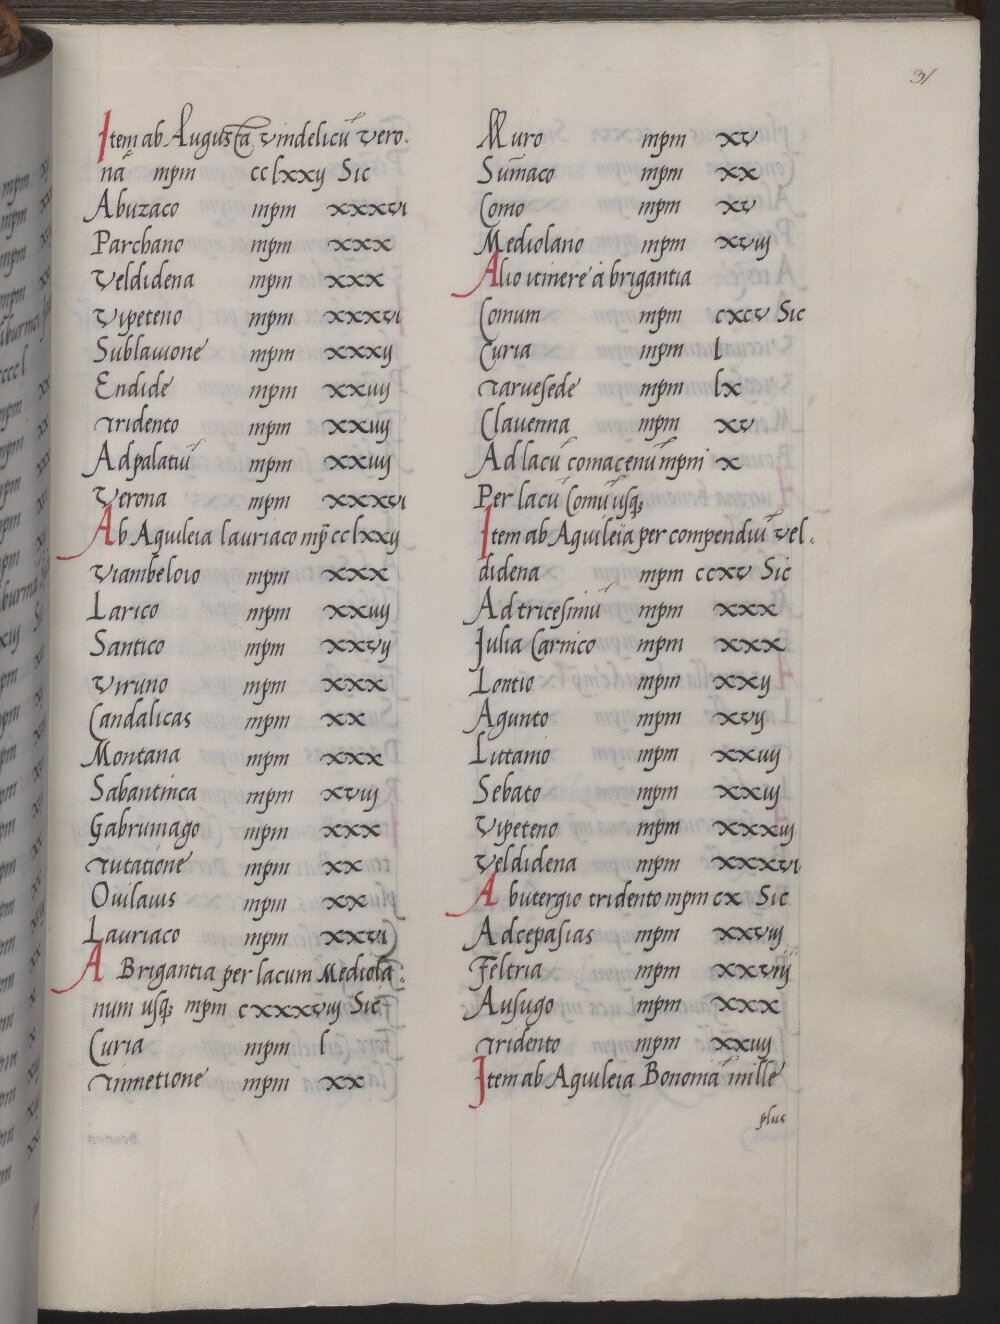 31
Item ab Augusta vindelicũ vero.
nã mpm cclxxij Sic
Abuzaco mpm xxxvi
Parchano mpm xxx
Veldidena mpm xxx
Vipeteno mpm xxxvi
Sublauione mpm xxxij
Endide mpm xxiiij
Tridento mpm xxiiij
Adpalatiũ mpm xxiiij
Verona mpm xxxvi
Ab Aquileia lauriaco mp̃ cclxxij
Viambeloio mpm xxx
Larico mpm xxiiij
Santico mpm xxvij
Viruno mpm xxx
Candalicas mpm xx
Montana mpm xxx
Sabantinca mpm xviij
Gabrumago mpm xxx
Tutatione mpm xx
Ouilauis mpm xx
Lauriaco mpm xxvi
A Brigantia per lacum Mediola.
num usq; mpm cxxxviij Sic
Curia mpm l
Tinnetione mpm xx
Muro mpm xv
Sum̃aco mpm xx
Como mpm xv
Mediolano mpm xviij
Alio itinere à brigantia
Comum mpm cxcv Sic
Curia mpm l
Tarvesede mpm lx
Clavenna mpm xv
Ad lacũ comacenũ mpm x
Per lacũ Comũ usq;
Item ab Aquileia per compendiũ Vel.
didena mpm ccxv Sic
Ad tricesimũ mpm xxx
Julia Carnico mpm xxx
Lontio mpm xxij
Agunto mpm xvij
Littamo mpm xxiiij
Sebato mpm xxiij
Vipeteno mpm xxxiij
Veldidena mpm xxxvi
Ab utergio tridento mpm cx Sic
Adcepasias mpm xxviij
Feltria mpm xxviij
Ausugo mpm xxx
Tridento mpm xxiiij
Item ab Aquileia Bononiã mille
plus